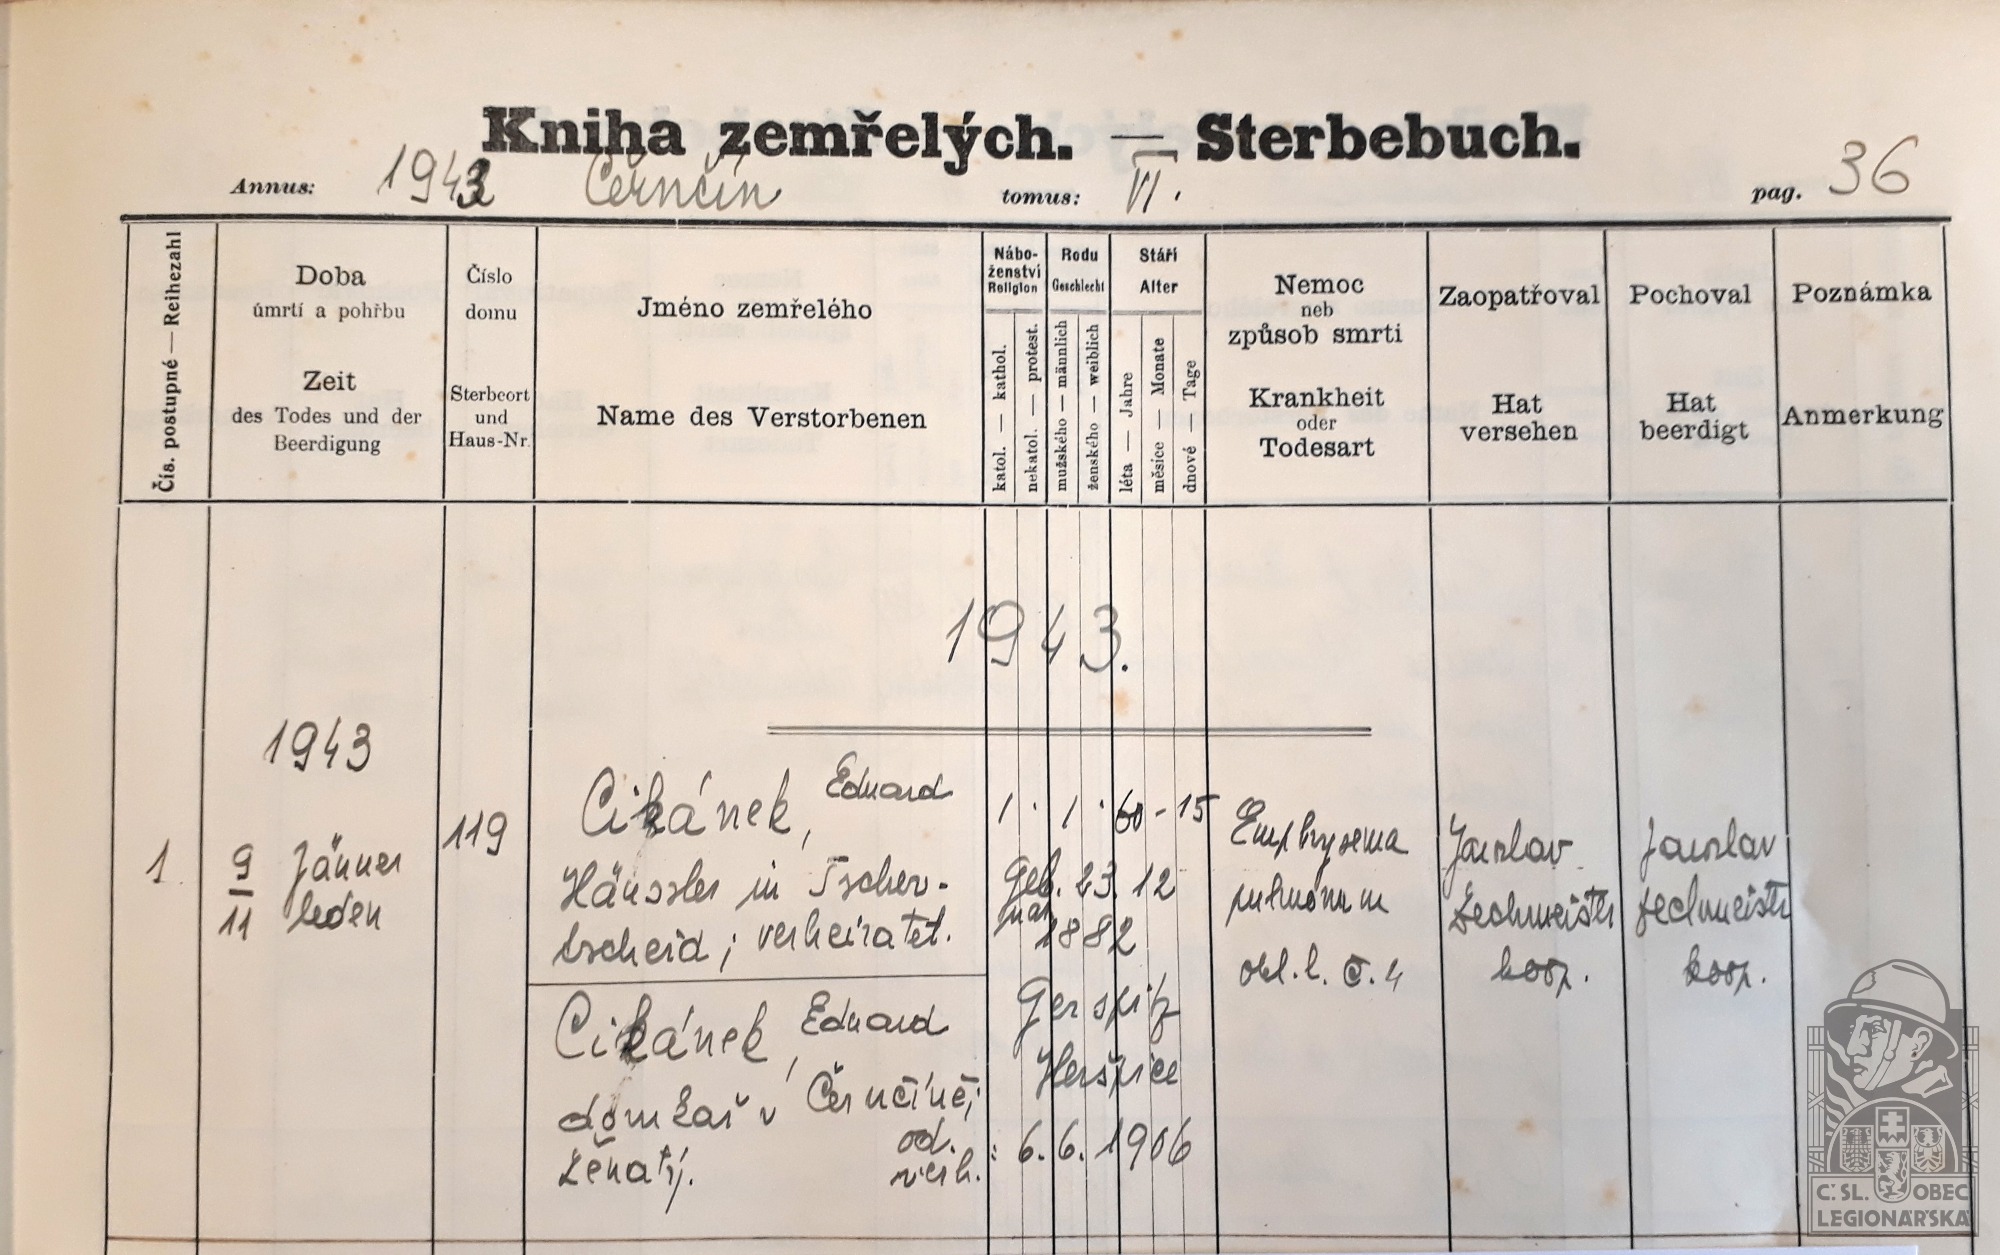 Kniha zemřelých. — Sterbebuch.
Annus: 1943 Černčín tomus: VI. pag. 36
Čís. postupné — Reihezahl
Doba
úmrtí a pohřbu
Zeit
des Todes und der
Beerdigung
Číslo
domu
Sterbeort
und
Haus-Nr.
Jméno zemřelého
Name des Verstorbenen
Nábo-
ženství
Religion
katol. — kathol.
nekatol. — protest.
Rodu
Geschlecht
mužského — männlich
ženského — weiblich
Stáří
Alter
léta — Jahre
měsíce — Monate
dnové — Tage
Nemoc
neb
způsob smrti
Krankheit
oder
Todesart
Zaopatřoval
Hat
versehen
Pochoval
Hat
beerdigt
Poznámka
Anmerkung
1943.
1943
1
9 Jänner
11 leden
119
Cikánek, Eduard
Häussler in Tschern-
tscheid; verheiratet.
Cikánek, Eduard
domkař v Černčíně;
ženatý.
1 . 1 . 60 - 15
Geb. 23. 12
nar. 1882
Gerspitz
Heršpice
od. : 6. 6. 1906
verh.
Emphysema
pulmonum
ohl. l. č. 4
Jaroslav
Zechmeister
koop.
Jaroslav
Zechmeister
koop.
Č. SL. OBEC
LEGIONÁŘSKÁ